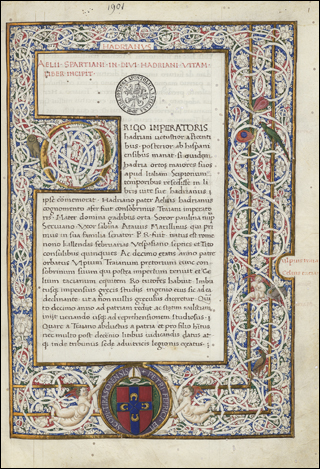 1901
HADRIANUS
AELII SPARTIANI IN DIVI HADRIANI VITAM
INCIPIT
RIGO IMPERATORIS
hadriani uetustior a
posterior ab hispani
ensibus manat. si quidem
hadria ortos maiores suos
apud italicam Scipionum
temporibus resedisse in li
bris uitæ suæ hadrianus
ipse commemorat. Hadriano pater Aelius hadrianus
cognomento afer fuit consobrinus Traiani imperato
ris: Mater domitia gadibus orta. Soror paulina nup
Seruiano. Vxor Sabina Atauus Marillinus qui pri
mus in sua familia senator P. R. fuit. natus est romæ
nono kallendas februarias Vespasiano septies et Tito
consulibus quinquies Ac decimo ætatis anno patre
orbatus Vlpium Traianum prætorium tunc conso
brinum suum qui postea imperium tenuit et Celium
tacianum equitem Ro tutores habuit. Imbu
tusque impensius græcis studiis ingenio eius sic ad ea
declinante ut a non nullis græculus diceretur. Quin
to decimo anno ad patriam rediit ac statim militiam
iniit uenandi usque ad reprehensionem studiosus.
Quare a Traiano abductus a patria et pro filio habitus
nec multo post decemuir litibus iudicandis datus at
que inde tribunus secundæ adiutricis legionis creatus.